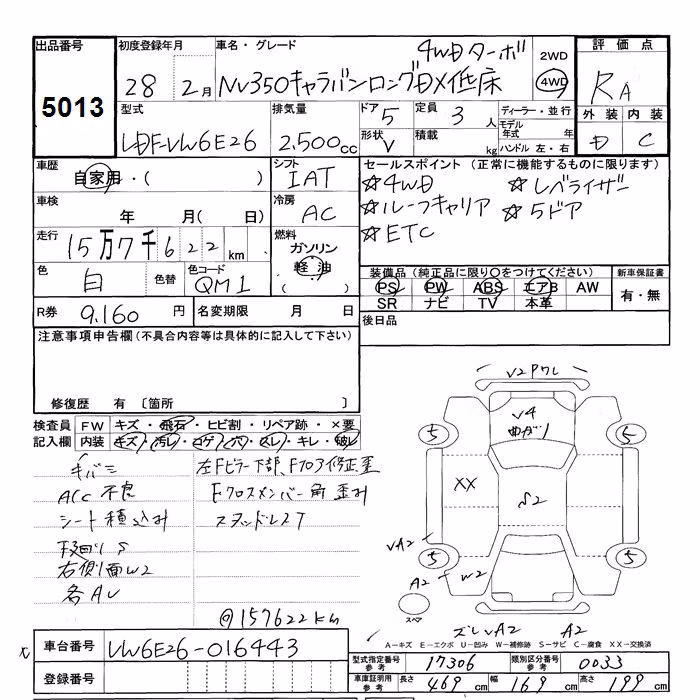 出品番号 初度登録年月 車名・グレード 4WDターボ 2WD 評価点
5013 28 2月 NV350キャラバンロングDX低床 4WD RA
型式 排気量 ドア 5 定員 3人 ディーラー・並行 外装 内装
LDF-VW6E26 2,500cc 形状 V 積載 kg モデル年式 年 ハンドル 左・右 D C
車歴 シフト セールスポイント(正常に機能するものに限ります)
自家用・( ) IAT ☆4WD ☆レベライザー
車検 冷房 ☆ルーフキャリア ☆5ドア
年 月( 日) AC ☆ETC
走行 燃料
15万7千622km ガソリン 軽油
色 色替 色コード 装備品(純正品に限り○をつけてください) 新車保証書
白 QM1 PS PW ABS エアB AW 有・無
SR ナビ TV 本革
R券 9,160円 名変期限 月 日 後日品
注意事項申告欄(不具合内容等は具体的に記入して下さい)
修復歴 有 〔箇所 〕
検査員 FW キズ・飛石・ヒビ割・リペア跡・×要
記入欄 内装 キズ・汚レ・コゲ・穴・スレ・キレ・破レ
左Fピラー下部、Fフロア修正歪
ACC不良 Fクロスメンバー角歪み
シート積込み スタッドレスT
下廻りS
右側面W2
各AU
@157622km
V2Pワレ
V4
曲がり
5 5
XX S2
VA2 5 5
A2 W2
スペア
ズレVA2 A2
A-キズ E-エクボ U-凹み W-補修跡 S-サビ C-腐食 XX-交換済
車台番号 VW6E26-016443
登録番号
型式指定番号 参考 17306 類別区分番号 参考 0033
車庫証明用 参考 長さ 469cm 幅 169cm 高さ 199cm